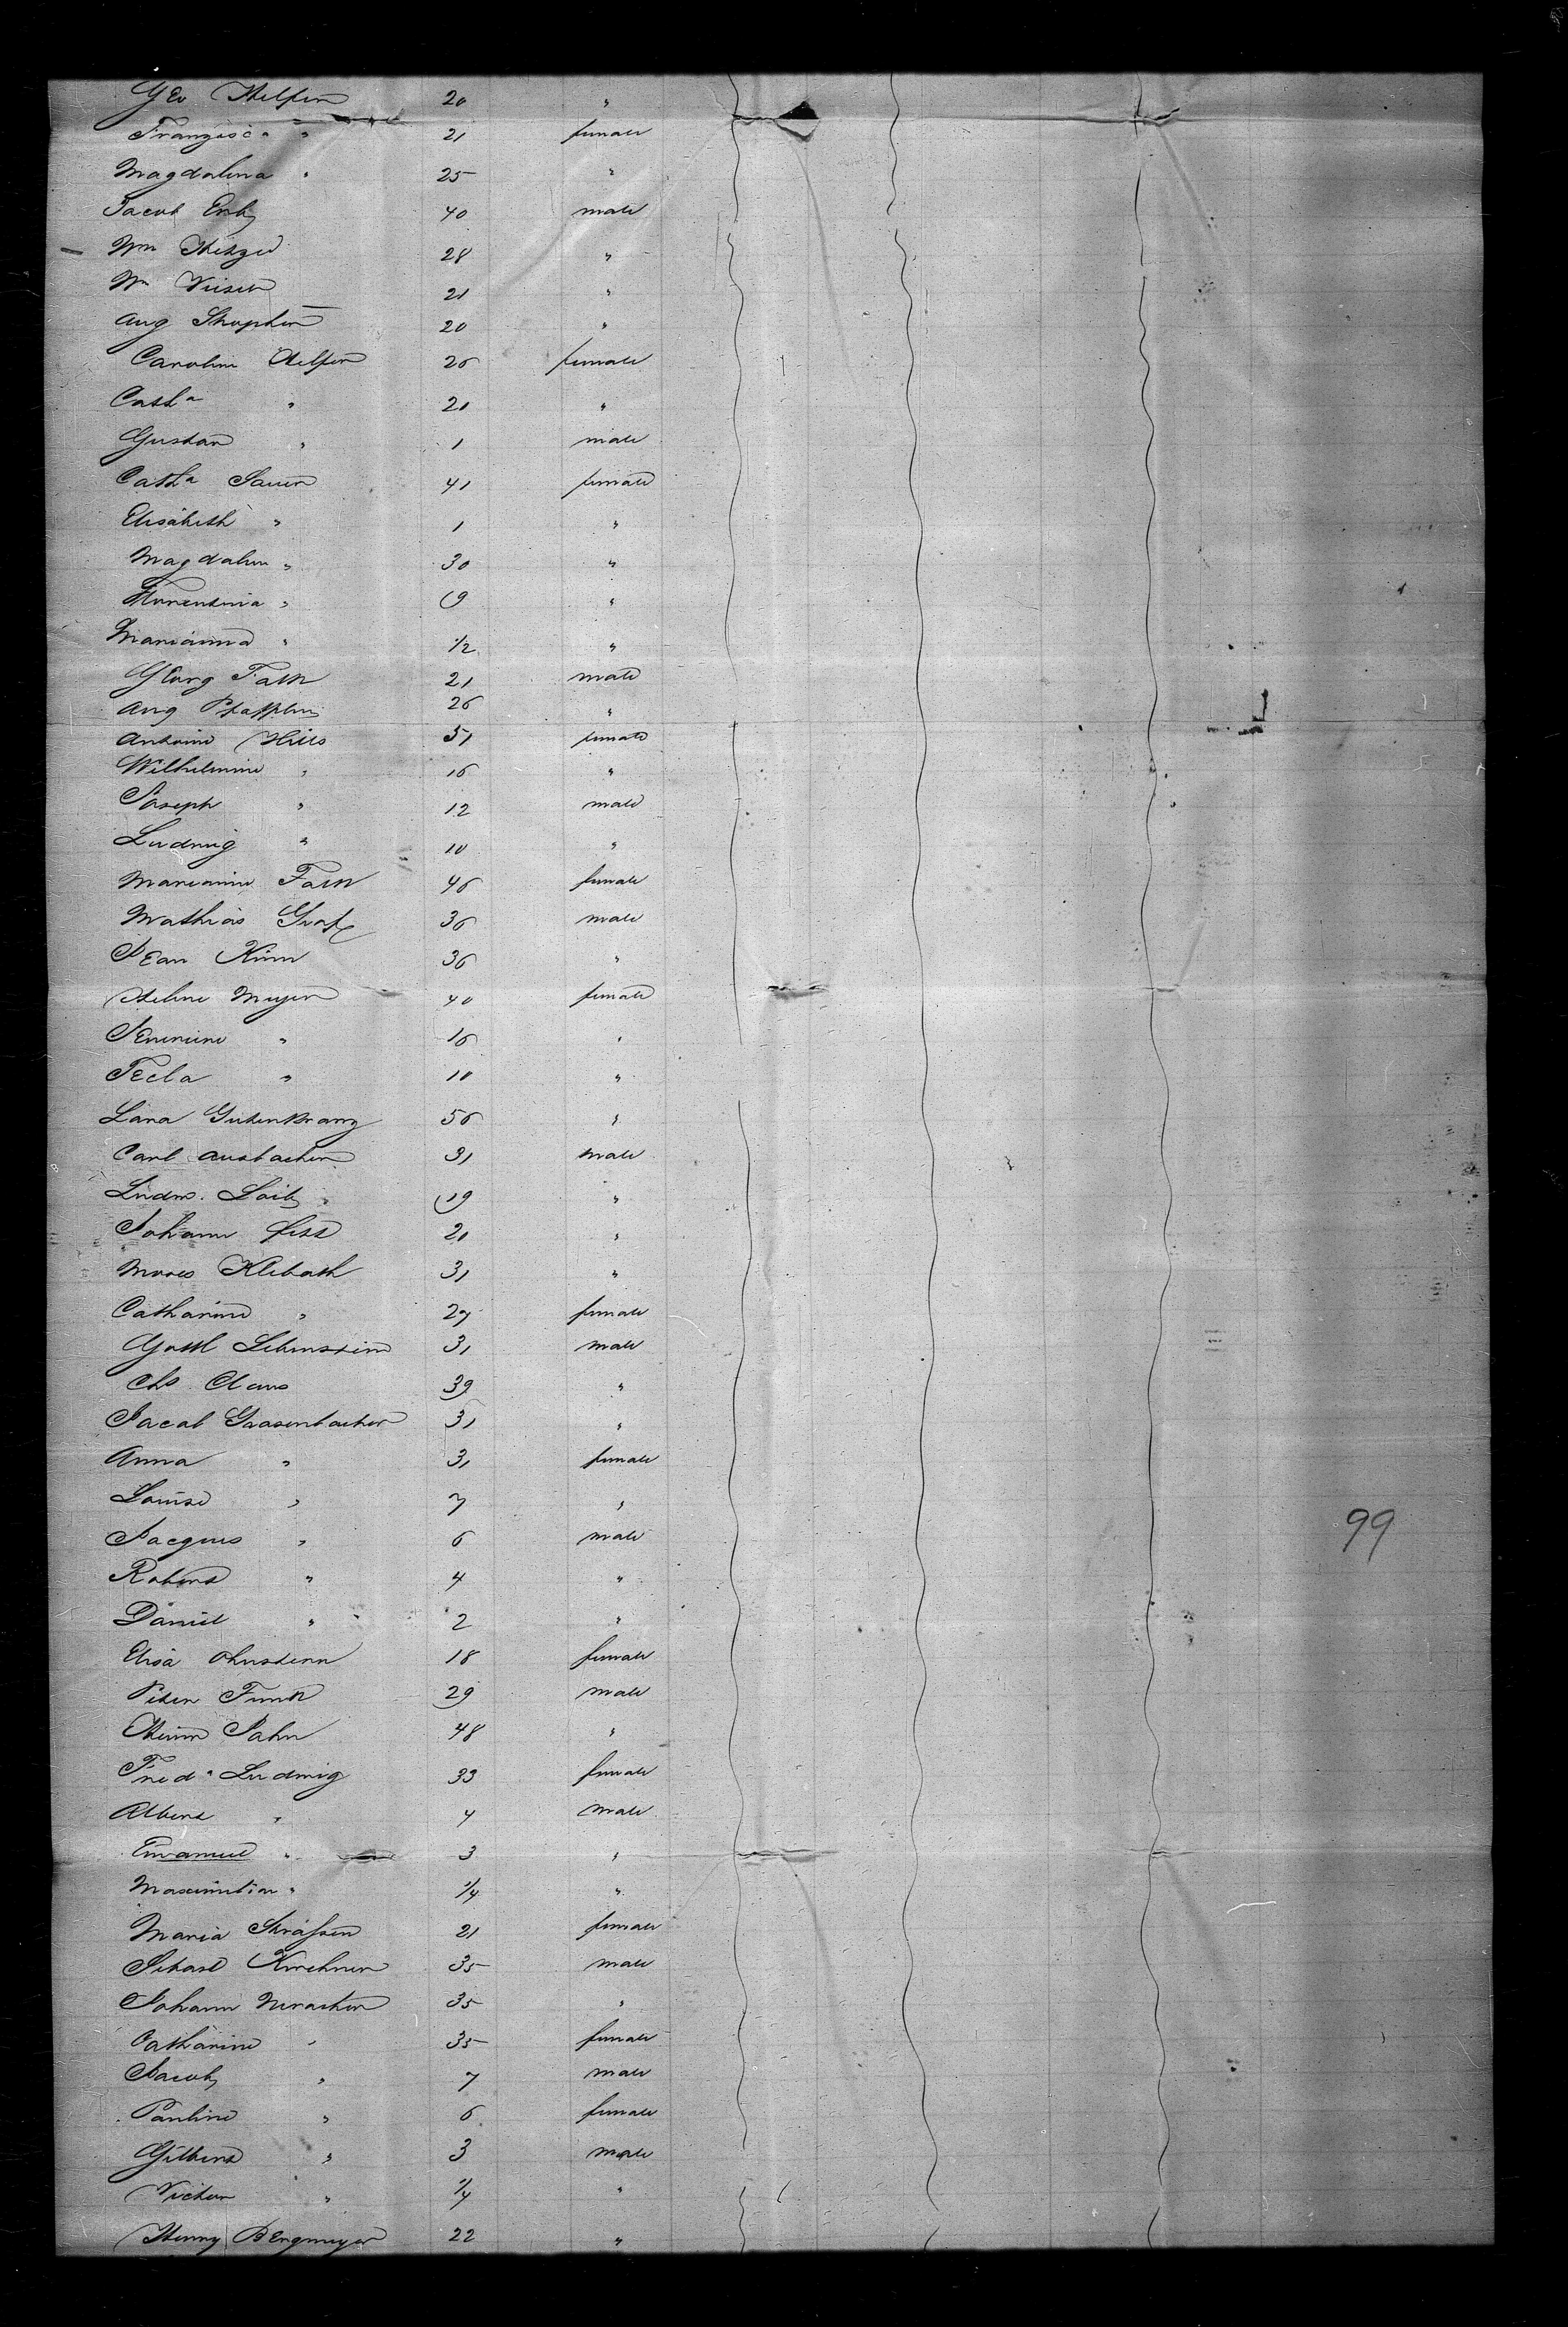 Geo Helfer 20 "
Francisca " 21 female
Magdalina " 25 "
Jacob Erb 40 male
Wm 28 "
Wm 21 "
Aug 20 "
Caroline Helfer 26 female
Catha " 21 "
Gustav " 1 male
Catha Sauer 41 female
Elisabeth " 1 "
Magdalen " 30 "
Florentina " 19 "
Marianna " 1/2 "
Georg Falk 21 male
Aug 26 "
Antoine 51 female
Wilhelmine " 16 "
Joseph " 12 male
Ludwig " 10 "
Marianne Falk 46 female
Mathias Graf 36 male
Jean 36 "
Helene Meyer 40 female
" 16 "
Tecla " 10 "
Lana 56 "
Carl Ausbacher 31 male
Ludw. Loib " 19 "
Johann 21 "
Moses Klebath 31 "
Catharine " 27 female
Gottl Lebenstein 31 male
Chs Claus 39 "
Jacob Grasenbacher 31 "
Anna " 31 female
Louise " 7 "
Jacques " 6 male
Robert " 4 "
Daniel " 2 "
Elisa 18 female
Peter Funk 29 male
Heinr Jahn 48 "
Freda Ludwig 33 female
Albert " 4 male
Emanuel " 3 "
Maximilian " 1/4 "
Maria Strasser 21 female
Sebast Kirchner 35 male
Johann 35 "
Catharine " 35 female
Jacob " 7 male
Pauline " 6 female
Gilbert " 3 male
Victor " 1/4 "
Henry Bergmeyer 22 "
99